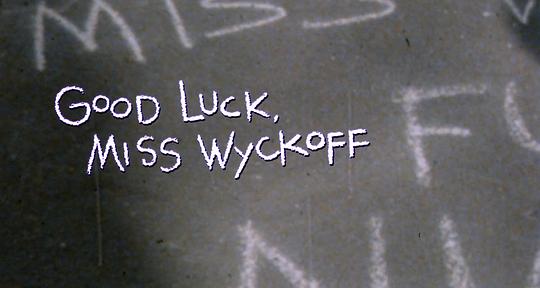 MISS
GOOD LUCK,
MISS WYCKOFF